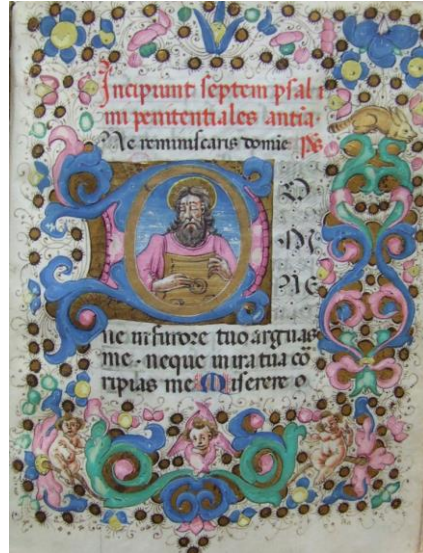 Incipiunt septem psal
mi penitentiales antia·
Ne reminiscaris domine Ps
D
O
M
I
NE
ne in furore tuo arguas
me· neque in ira tua cō
ripias me Miserere o